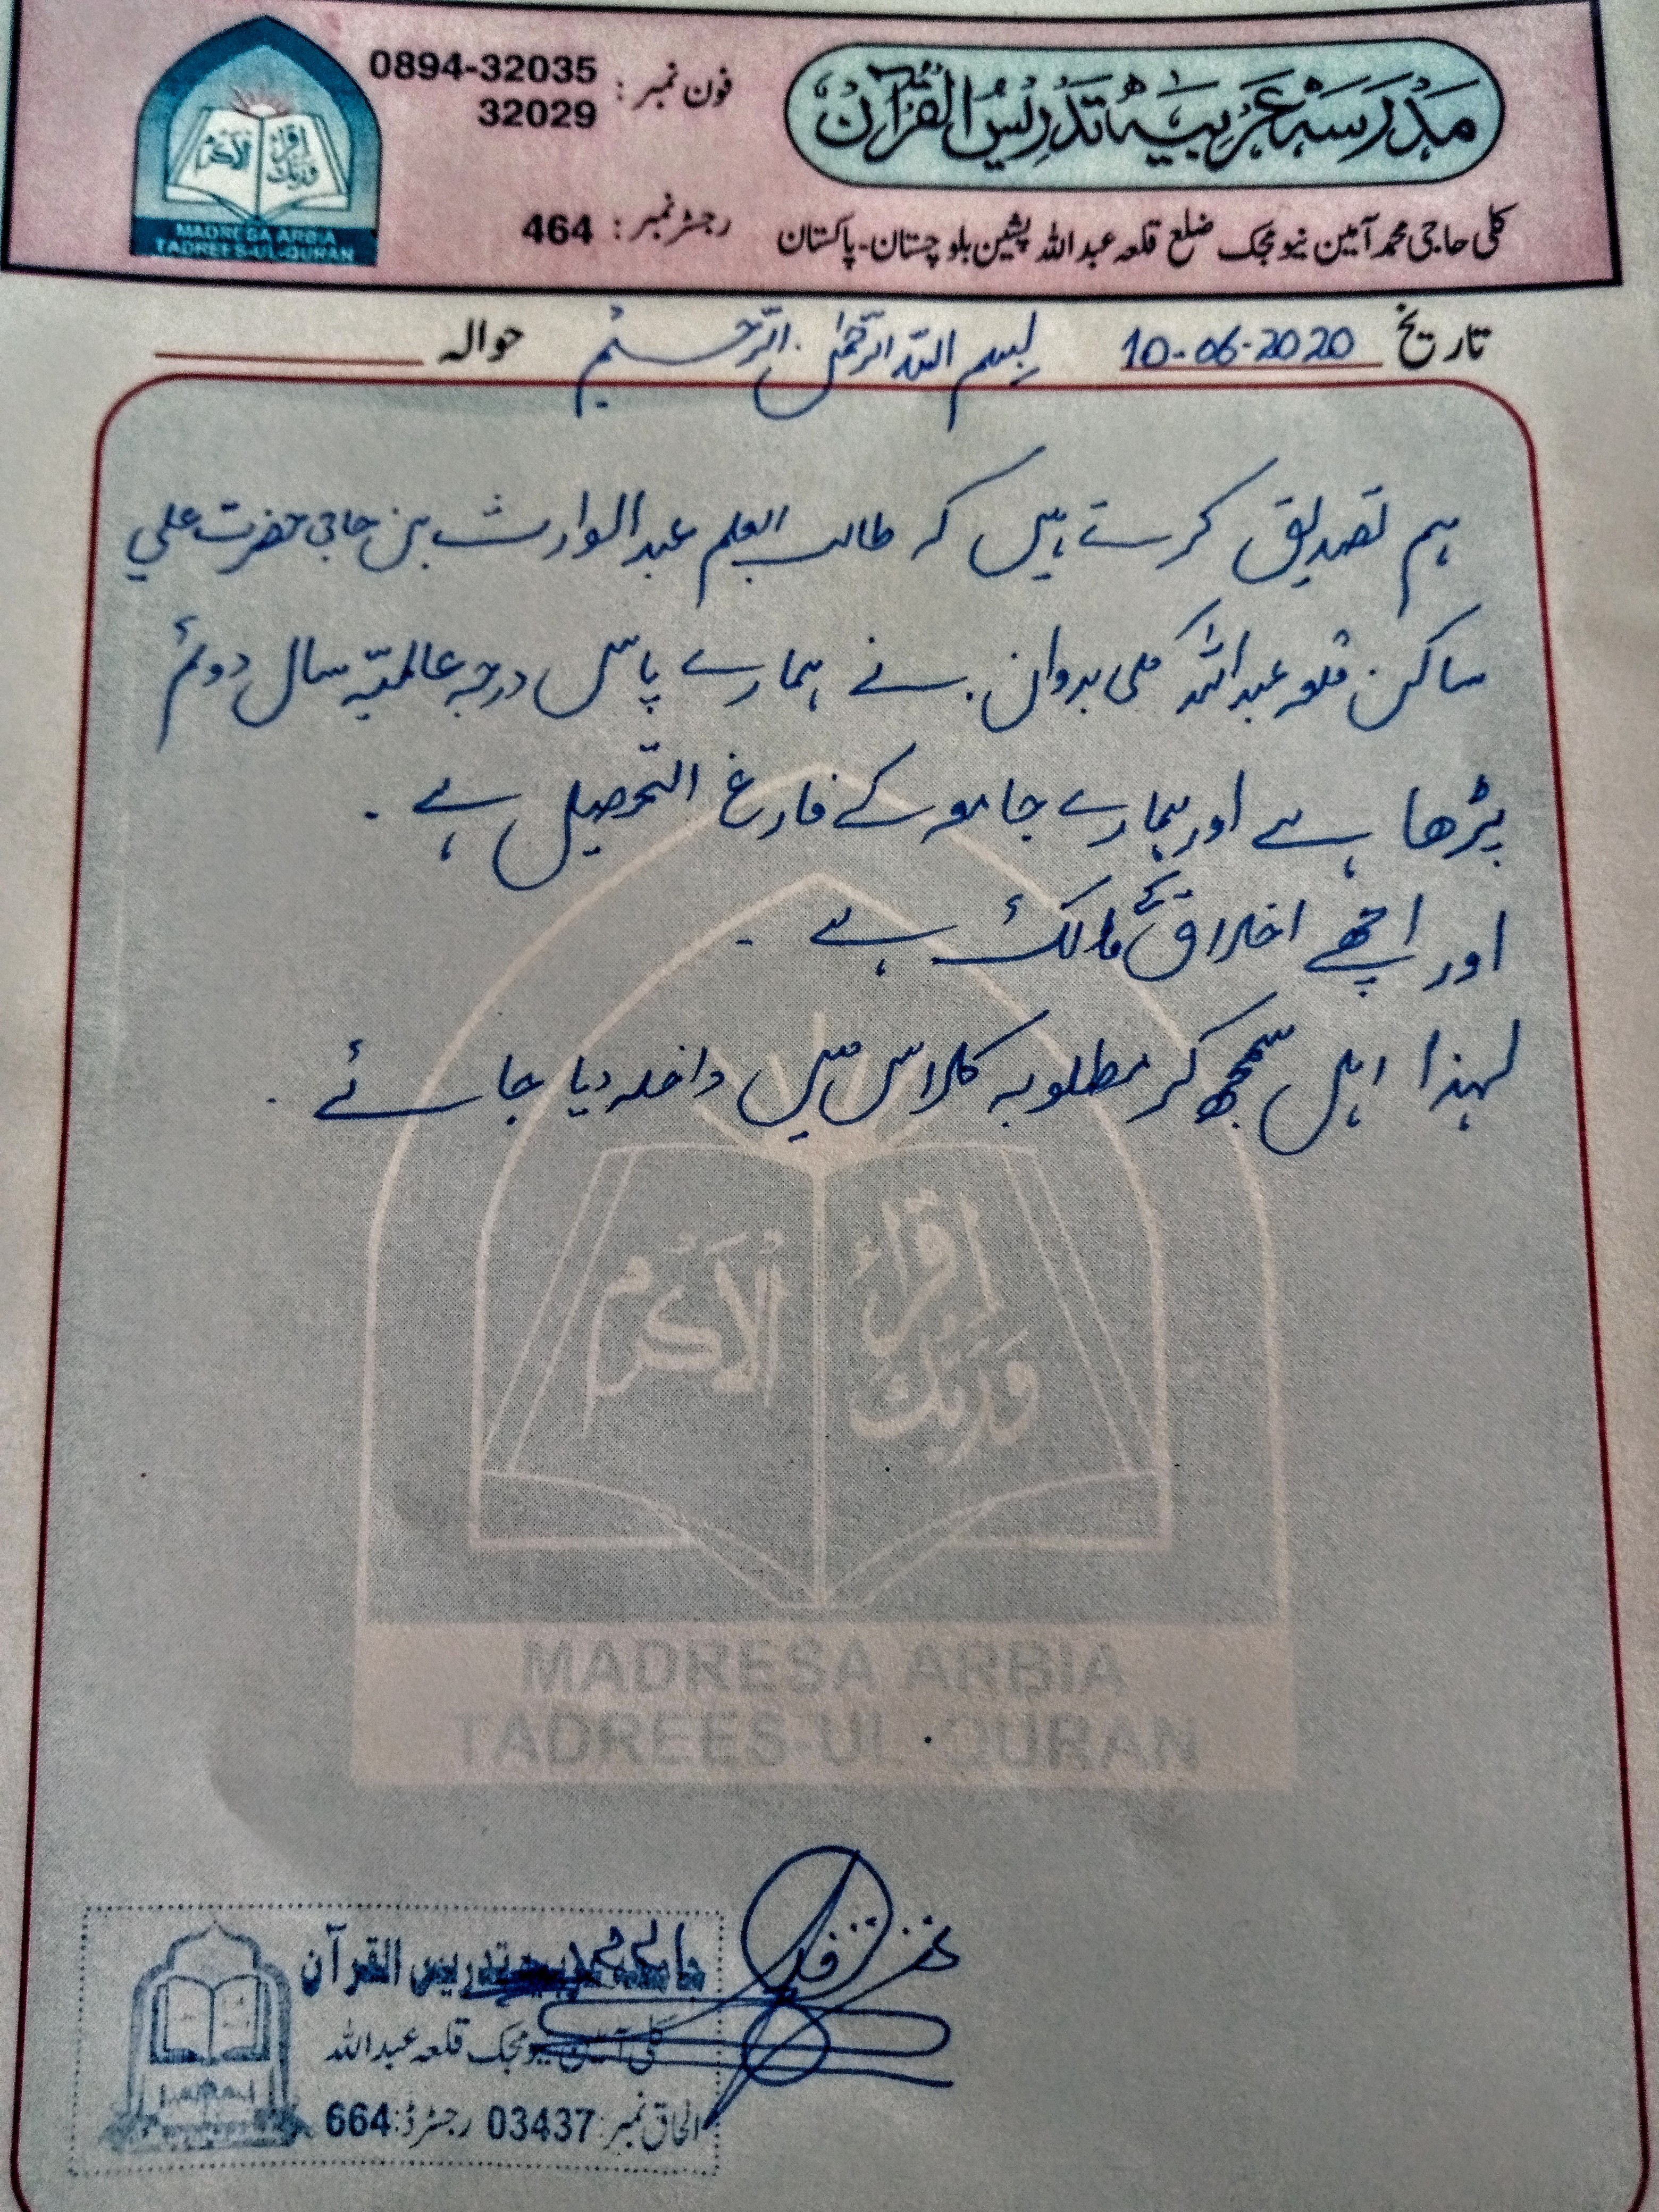 مدرسہ عربیہ تدریس القرآن
فون نمبر: 0894-32035
32029
کلی حاجی محمد آمین نیو مجک ضلع قلعہ عبداللہ پشین بلوچستان-پاکستان
رجسٹر نمبر: 464
اقرأ وربك الأكرم
MADRESA ARBIA
TADREES-UL-QURAN
تاریخ 10-06-2020 بسم اللہ الرحمٰن الرحیم حوالہ
ہم تصدیق کرتے ہیں کہ طالب العلم عبدالوارث بن حاجی حضرت علی
ساکن قلعہ عبداللہ کلی بدوان. نے ہمارے پاس درجہ عالمیّہ سال دوئم
پڑھا ہے اور ہمارے جامعہ کے فارغ التحصیل ہے.
اور اچھے اخلاق کے مالک ہے.
لہذا اہل سمجھ کر مطلوبہ کلاس میں داخلہ دیا جائے.
اقرأ وربك الأكرم
MADRESA ARBIA
TADREES-UL-QURAN
تدریس القرآن
کلی قلعہ عبداللہ
الحاق نمبر: 03437 رجسٹرڈ: 664